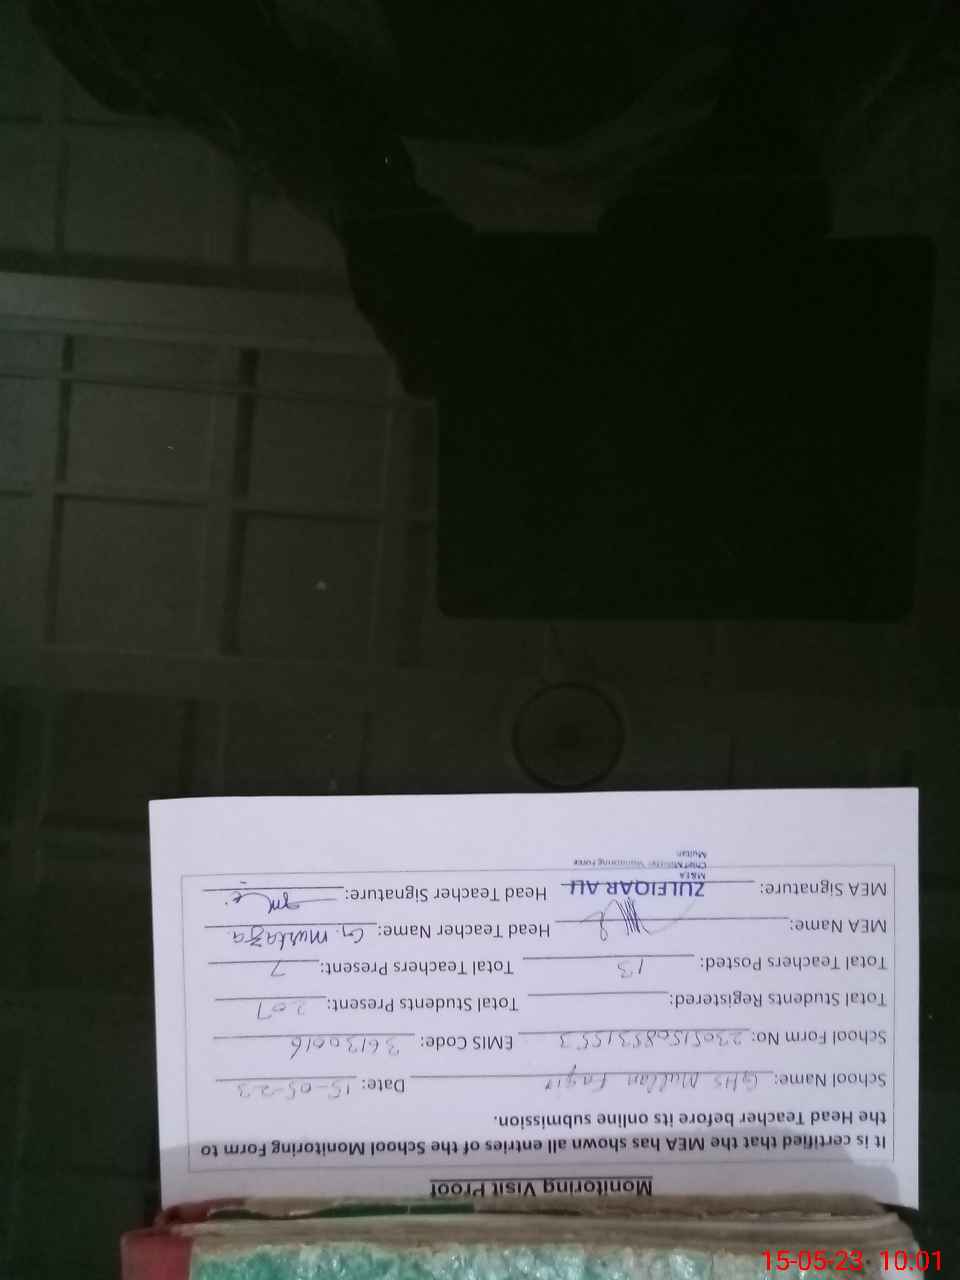 Monitoring Visit Proof
It is certified that the MEA has shown all entries of the School Monitoring Form to
the Head Teacher before its online submission.
School Name: GHS Mullan Faqir Date: 15-05-23
School Form No: 23051508531553 EMIS Code: 36130016
Total Students Registered: Total Students Present: 207
Total Teachers Posted: 13 Total Teachers Present: 7
MEA Name: Head Teacher Name: G. Murtaza
MEA Signature: ZULFIQAR ALI Head Teacher Signature:
MEA
Chief Minister Monitoring Force
Multan
15-05-23 10:01